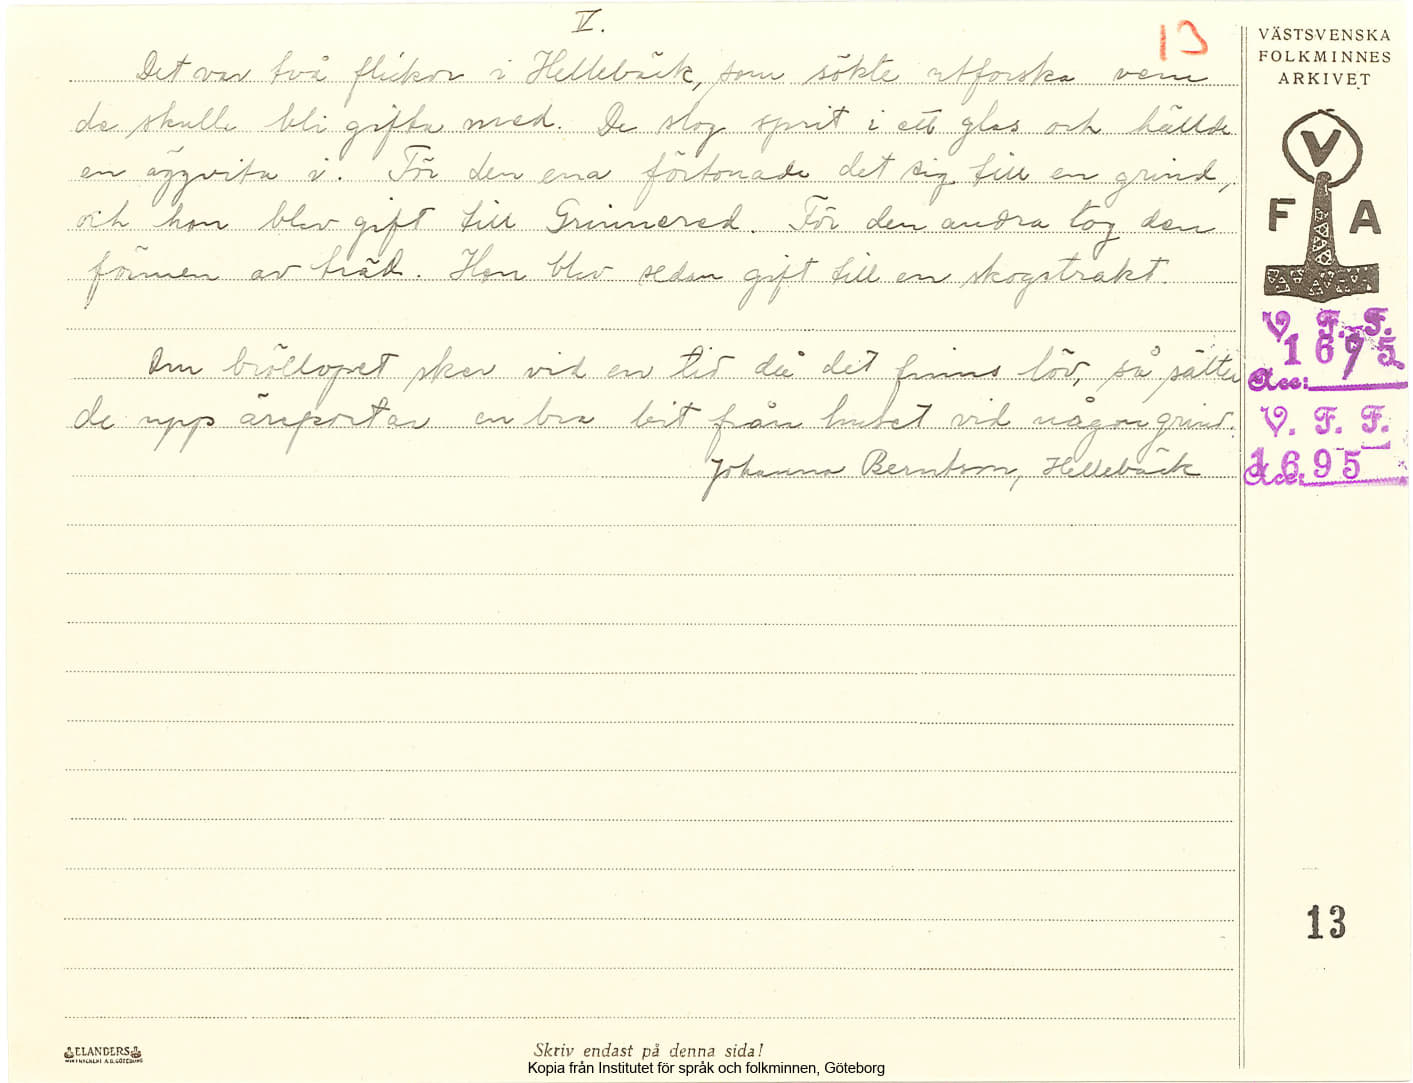 V.
13
Det var två flickor i Hellebäck, som sökte utforska vem
de skulle bli gifta med. De slog sprit i ett glas och hällde
en äggvita i. För den ena förtonade det sig till en grind,
och hon blev gift till Grinnered. För den andra tog den
formen av träd. Hon blev sedan gift till en skogstrakt.
Om bröllopet sker vid en tid då det finns löv, så sätter
de upp äreportar en bra bit från huset vid någon grind.
Johanna Berntson, Hellebäck
VÄSTSVENSKA
FOLKMINNES
ARKIVET
V
F A
V. F. F.
1695
Acc:
V. F. F.
1695
Acc:
13
ELANDERS
Skriv endast på denna sida!
Kopia från Institutet för språk och folkminnen, Göteborg